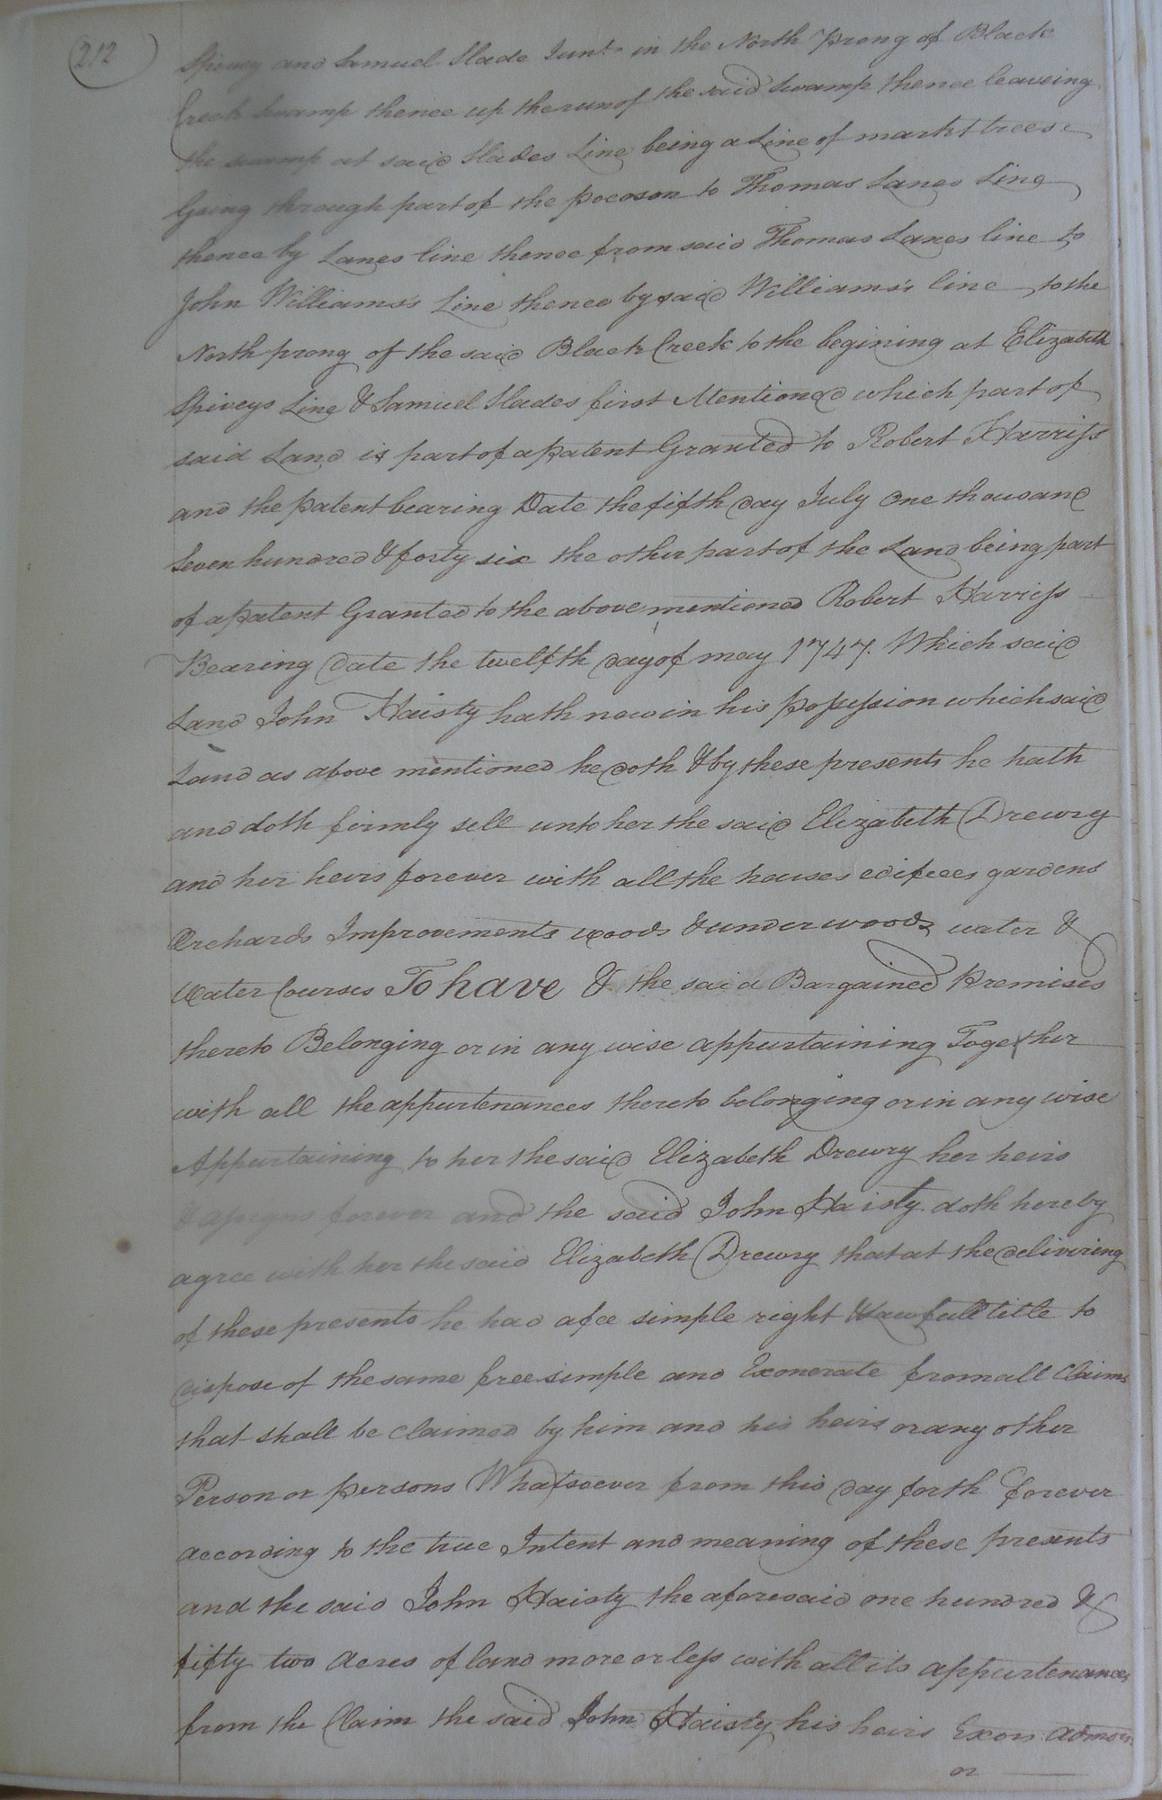 212
Spivey and Samuel Slade Junr in the North prong of Black
Creek Swamp thence up the run of the said Swamp thence leaveing
the swamp at said Slades Line being a Line of markt trees
Going through part of the pocoson to Thomas Lanes Line
thence by Lanes line thence from said Thomas Lanes line to
John Williams's Line thence by said Williams's line to the
North prong of the said Black Creek to the begining at Elizabeth
Spiveys Line & Samuel Slades first Mentioned which part of
said Land is part of a patent Granted to Robert Harriss
and the patent bearing Date the fifth day July One thousand
Seven hundred & forty six the other part of the Land being part
of a patent Granted to the above mentioned Robert Harriss
Bearing date the twelfth day of may 1747. Which said
Land John Haisty hath now in his possession which said
Land as above mentioned he doth & by these presents he hath
and doth firmly sell unto her the said Elizabeth Drewry
and her heirs forever with all the houses edifeces gardens
Orchards Improvements woods & underwoods water &
Water Courses To have & the said Bargained Premises
thereto Belonging or in any wise appurtaining Together
with all the appurtenances thereto belonging or in any wise
Appurtaining to her the said Elizabeth Drewry her heirs
& assigns forever and the said John Haisty doth hereby
agree with her the said Elizabeth Drewry that at the delivering
of these presents he had a fee simple right & lawfull title to
dispose of the same free simple and Exonerate from all Claims
that shall be claimed by him and his heirs or any other
Person or persons Whatsoever from this day forth forever
according to the true Intent and meaning of these presents
and the said John Haisty the aforesaid one hundred &
fifty two Acres of land more or less with all its appurtenances
from the Claim the said John Haisty his heirs Exors Admors
or